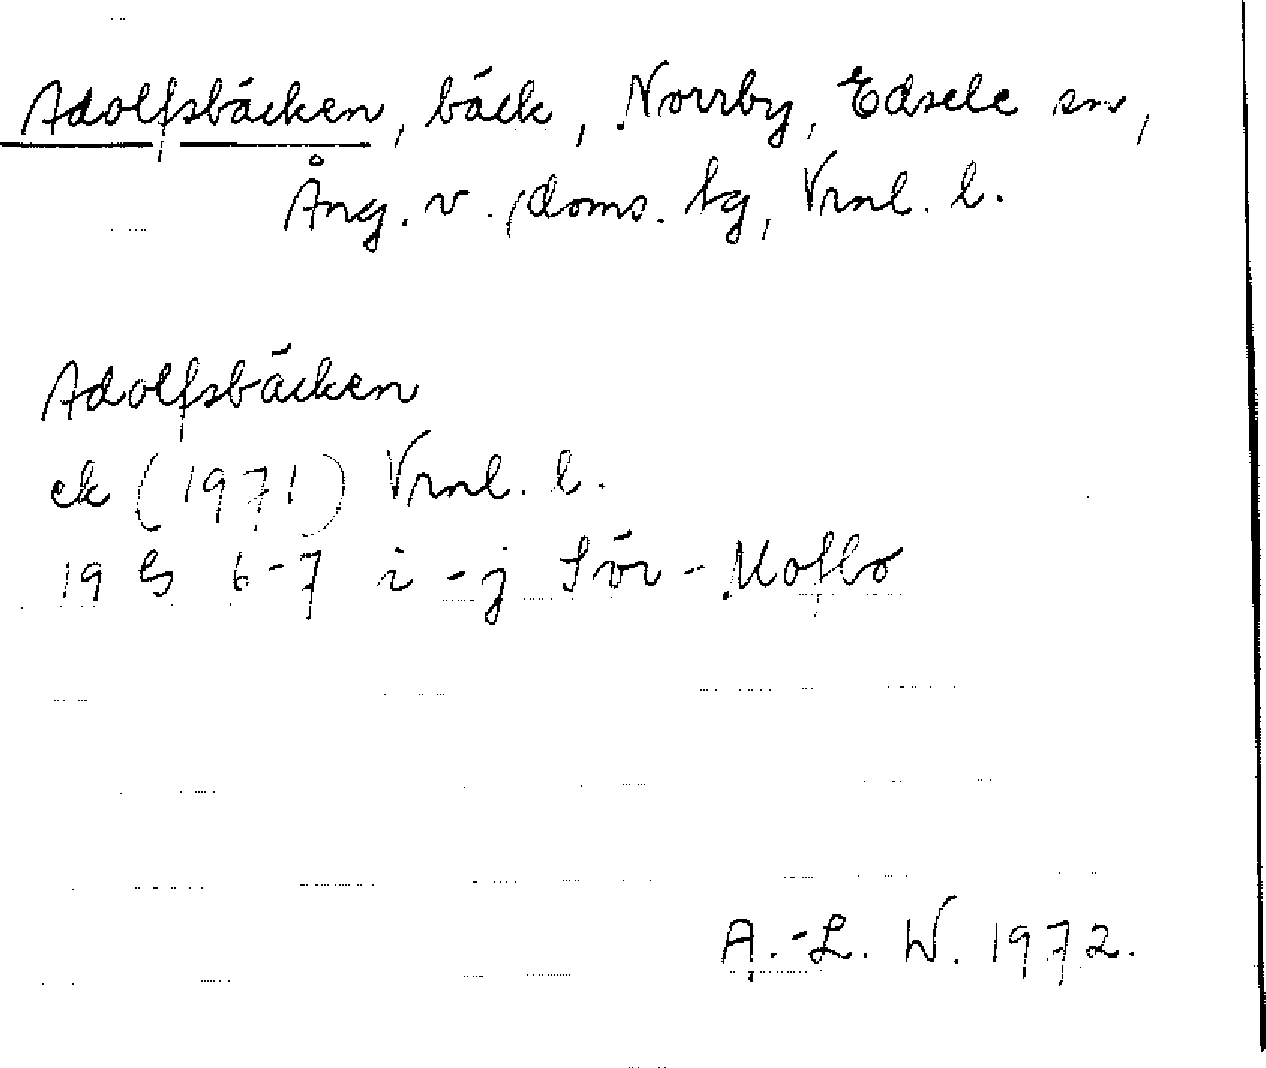 Adolfsbäcken, bäck, Norrby, Edsele sn,
Ång. v. doms. tg, Vrnl. l.
Adolfsbäcken
ek (1971) Vrnl. l.
19 G 6-7 i-j Sör-Moflo
A.-L. W. 1972.